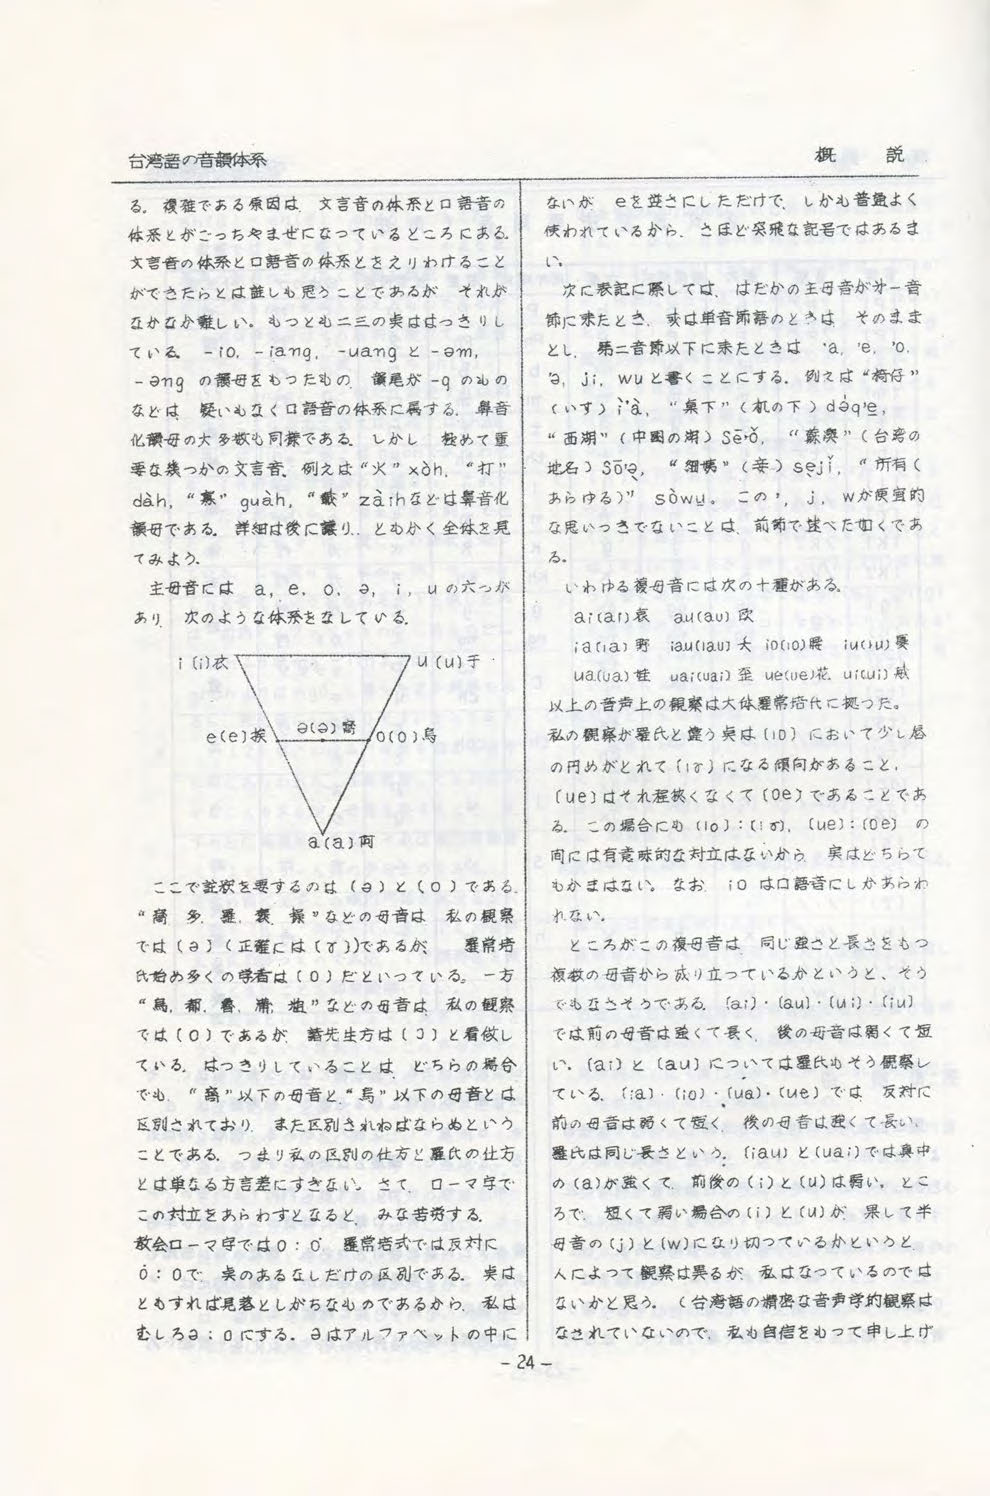 台湾語の音韻体系
概 説
る。複雑である原因は、文言音の体系と口語音の
体系とがごっちやまぜになっているところにある。
文言音の体系と口語音の体系とをえりわけること
ができたらとは誰しも思うことであるが、それが
なかなか難しい。もっとも二三の点ははっきりし
ている。-io, -iang, -uang と -əm,
-əng の韻母をもったもの、韻尾が -q のもの
などは、疑いもなく口語音の体系に属する。鼻音
化韻母の大多数も同様である。しかし、極めて重
要な幾つかの文言音、例えば“火”xòh, “打”
dàh, “寡”guàh, “ ”zàihなどは鼻音化
韻母である。詳細は後に譲り、ともかく全体を見
てみよう。
主母音には a, e, o, ə, i, u の六つが
あり、次のような体系をなしている。
i (i)衣 u (u)于
e(e)挨 ə(ə)窩 o(o)烏
a(a)阿
ここで註釈を要するのは(ə)と(o)である。
“窩、多、羅、褒、操”などの母音は、私の観察
では(ə)(正確には(ɤ))であるが、羅常培
氏始め多くの学者は(o)だといっている。一方
“烏、都、魯、 、租”などの母音は、私の観察
では(o)であるが、諸先生方は(ɔ)と看做し
ている。はっきりしていることは、どちらの場合
でも、“窩”以下の母音と“烏”以下の母音とは
区別されており、また区別されねばならぬという
ことである。つまり私の区別の仕方と羅氏の仕方
とは単なる方言差にすぎない。さて、ローマ字で
この対立をあらわすとなると、みな苦労する。
教会ローマ字ではo：o͘ 羅常培式では反対に
o͘：oで、点のあるなしだけの区別である。点は
ともすれば見落としがちなものであるから、私は
むしろə：oにする。əはアルファベットの中に
ないが、eを逆さにしただけで、しかも普通よく
使われているから、さほど突飛な記号ではあるま
い。
次に表記に際しては、はだかの主母音が才一音
節に来たとき、或は単音節語のときは、そのまま
とし、第二音節以下に来たときは 'a, 'e, 'o,
'ə, ji, wuと書くことにする。例えば“椅仔”
(いす) ì'à, “桌下”(机の下) də̀q'e̱,
“西湖”(中国の湖) Sē'ǒ, “蘇澳”(台湾の
地名) Sō'ə̱, “細姨”(妾) se̱jǐ, “所有(
あらゆる)” sòwu̱。この ', j, wが便宜的
な思いつきでないことは、前節で述べた如くであ
る。
いわゆる複母音には次の十種がある。
ai(ai)哀 au(au)欧
ia(ia)野 iau(iau)夭 io(io)腰 iu(iu)憂
ua(ua)蛙 uai(uai)歪 ue(ue)花 ui(ui)威
以上の音声上の観察は大体羅常培氏に拠った。
私の観察が羅氏と違う点は(io)において少し唇
の円めがとれて(iɤ)になる傾向があること、
(ue)はそれ程狭くなくて(oe)であることであ
る。この場合にも(io)：(iɤ), (ue)：(oe) の
間には有意味的な対立はないから、実はどちらで
もかまわない。なお、io は口語音にしかあらわ
れない。
ところがこの複母音は、同じ強さと長さをもつ
複数の母音から成り立っているかというと、そう
でもなさそうである。(ai)・(au)・(ui)・(iu)
では前の母音は強くて長く、後の母音は弱くて短
い。(ai)と(au)については羅氏もそう観察し
ている。(ia)・(io)・(ua)・(ue)では、反対に
前の母音は弱くて短く、後の母音は強くて長い。
羅氏は同じ長さという。(iau)と(uai)では真中
の(a)が強くて、前後の(i)と(u)は弱い。とこ
ろで、短くて弱い場合の(i)と(u)が、果して半
母音の(j)と(w)になり切っているかというと、
人によって観察は異るが、私はなっているのでは
ないかと思う。(台湾語の精密な音声学的観察は
なされていないので、私も自信をもって申し上げ
- 24 -